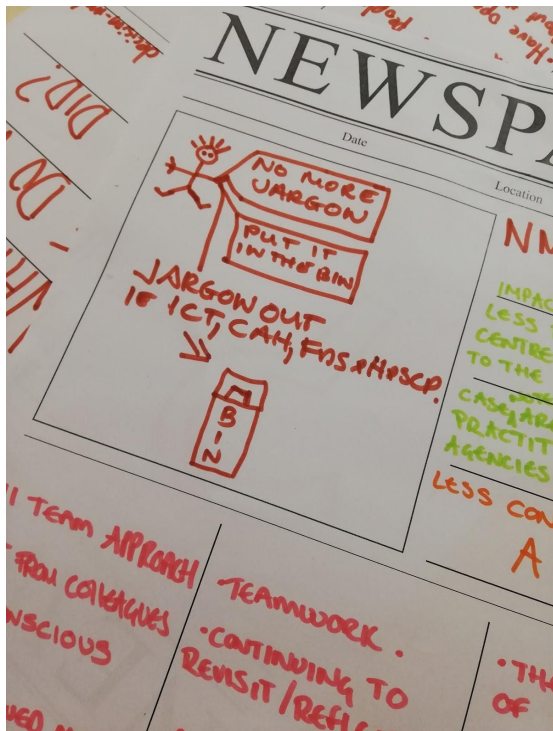 NEWSPA
Date
Location
DID?
DO
NO MORE
JARGON
PUT IT
IN THE BIN
JARGON OUT
IE ICT, CAH, FDS & HPSCP.
BIN
IMPAC
LESS
CENTRE
TO THE
CASE, ARE
PRACTIT
AGENCIES
LESS CON
A
TEAM APPROACH
FROM COLLEAGUES
NSCIOUS
TEAMWORK.
• CONTINUING TO
REVISIT / REFLEC
• THE
OF